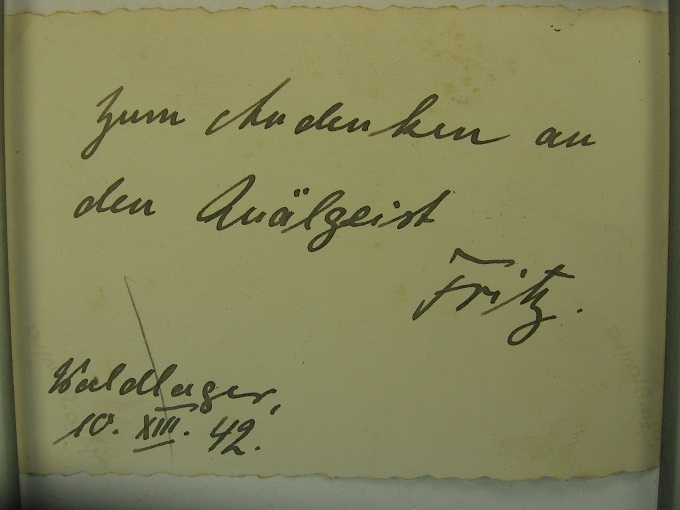 Zum Andenken an
den Quälgeist
Fritz.
Waldlager,
10. XIII. 42.